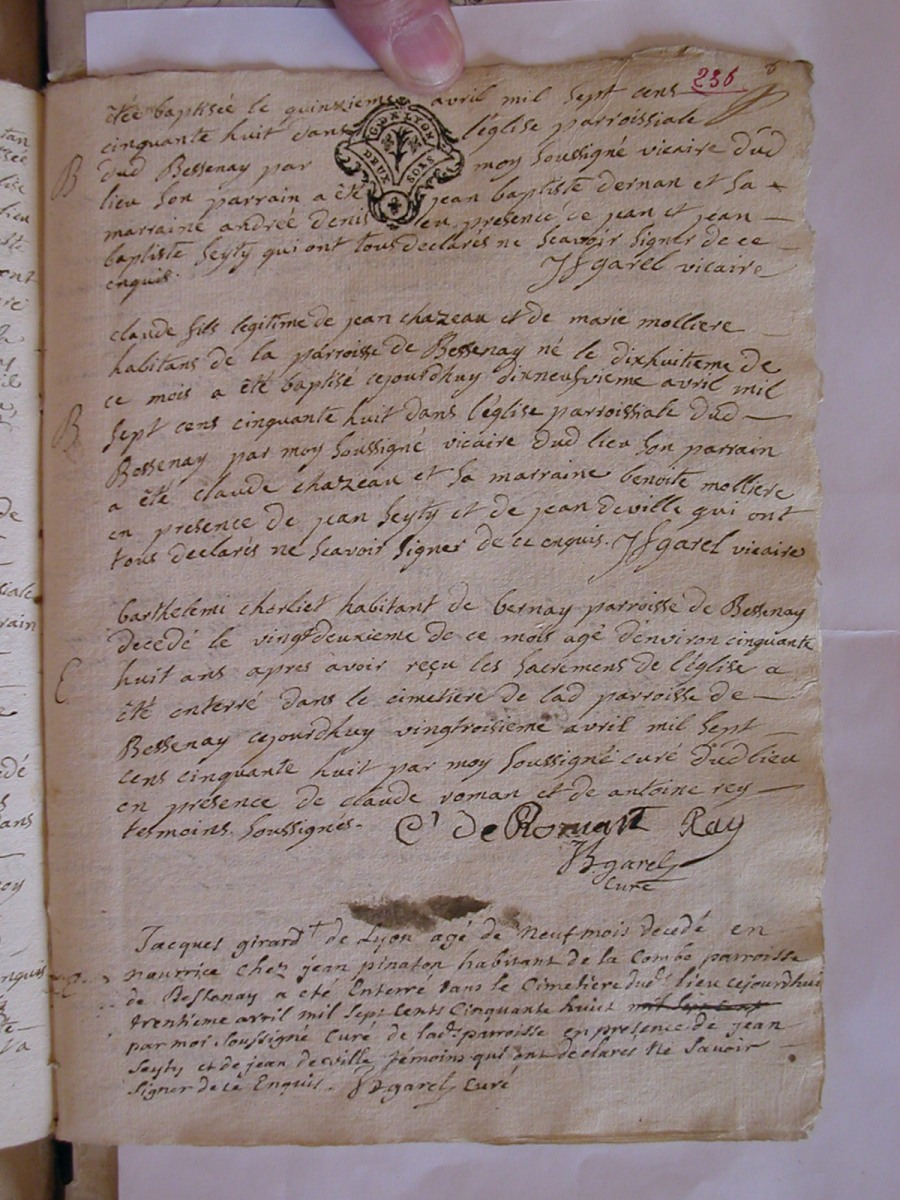 236
été baptisée le quinzieme avril mil sept cens
cinquante huit dans l'église parroissiale
G. DE LYON
DEUX SOLS
B
dud Bessenay par moy soussigné vicaire dud
lieu son parrain a été jean baptiste dernan et sa
marraine andrée denis en presence de jean et jean
baptiste seyty qui ont tous declarés ne scavoir signer de ce
enquis. garel vicaire
claude fils legitime de jean chazeau et de marie molliere
habitans de la parroisse de Bessenay né le dixhuitieme de
ce mois a été baptisé cejourdhuy dixneufvieme avril mil
B
sept cens cinquante huit dans l'église parroissiale dud
Bessenay par moy soussigné vicaire dud lieu son parrain
a été claude chazeau et sa marraine benoite molliere
en presence de jean seyty et de jean deville qui ont
tous declarés ne scavoir signer de ce enquis. garel vicaire
barthelemi cherliet habitant de bernay parroisse de Bessenay
decedé le vingtdeuxieme de ce mois agé d'environ cinquante
E
huit ans apres avoir reçu les sacremens de l'église a
été enterré dans le cimetiere de lad parroisse de
Bessenay cejourdhuy vingtroisieme avril mil sept
cens cinquante huit par moy soussigné curé dud lieu
en présence de claude roman et de antoine rey
temoins soussignés. de Romant Ray
garel
curé
Jacques girard de Lyon agé de neuf mois decedé en
E
nourrice chez jean pinaton habitant de la Combe parroisse
de Bessenay a été Enterré dans le Cimetiere dud lieu cejourdhui
trentieme avril mil sept Cents Cinquante huict
par moi soussigné Curé de lad. parroisse en presence de jean
seyty et de jean deville temoins qui ont declarés Ne Savoir
signer de ce Enquis. garel Curé